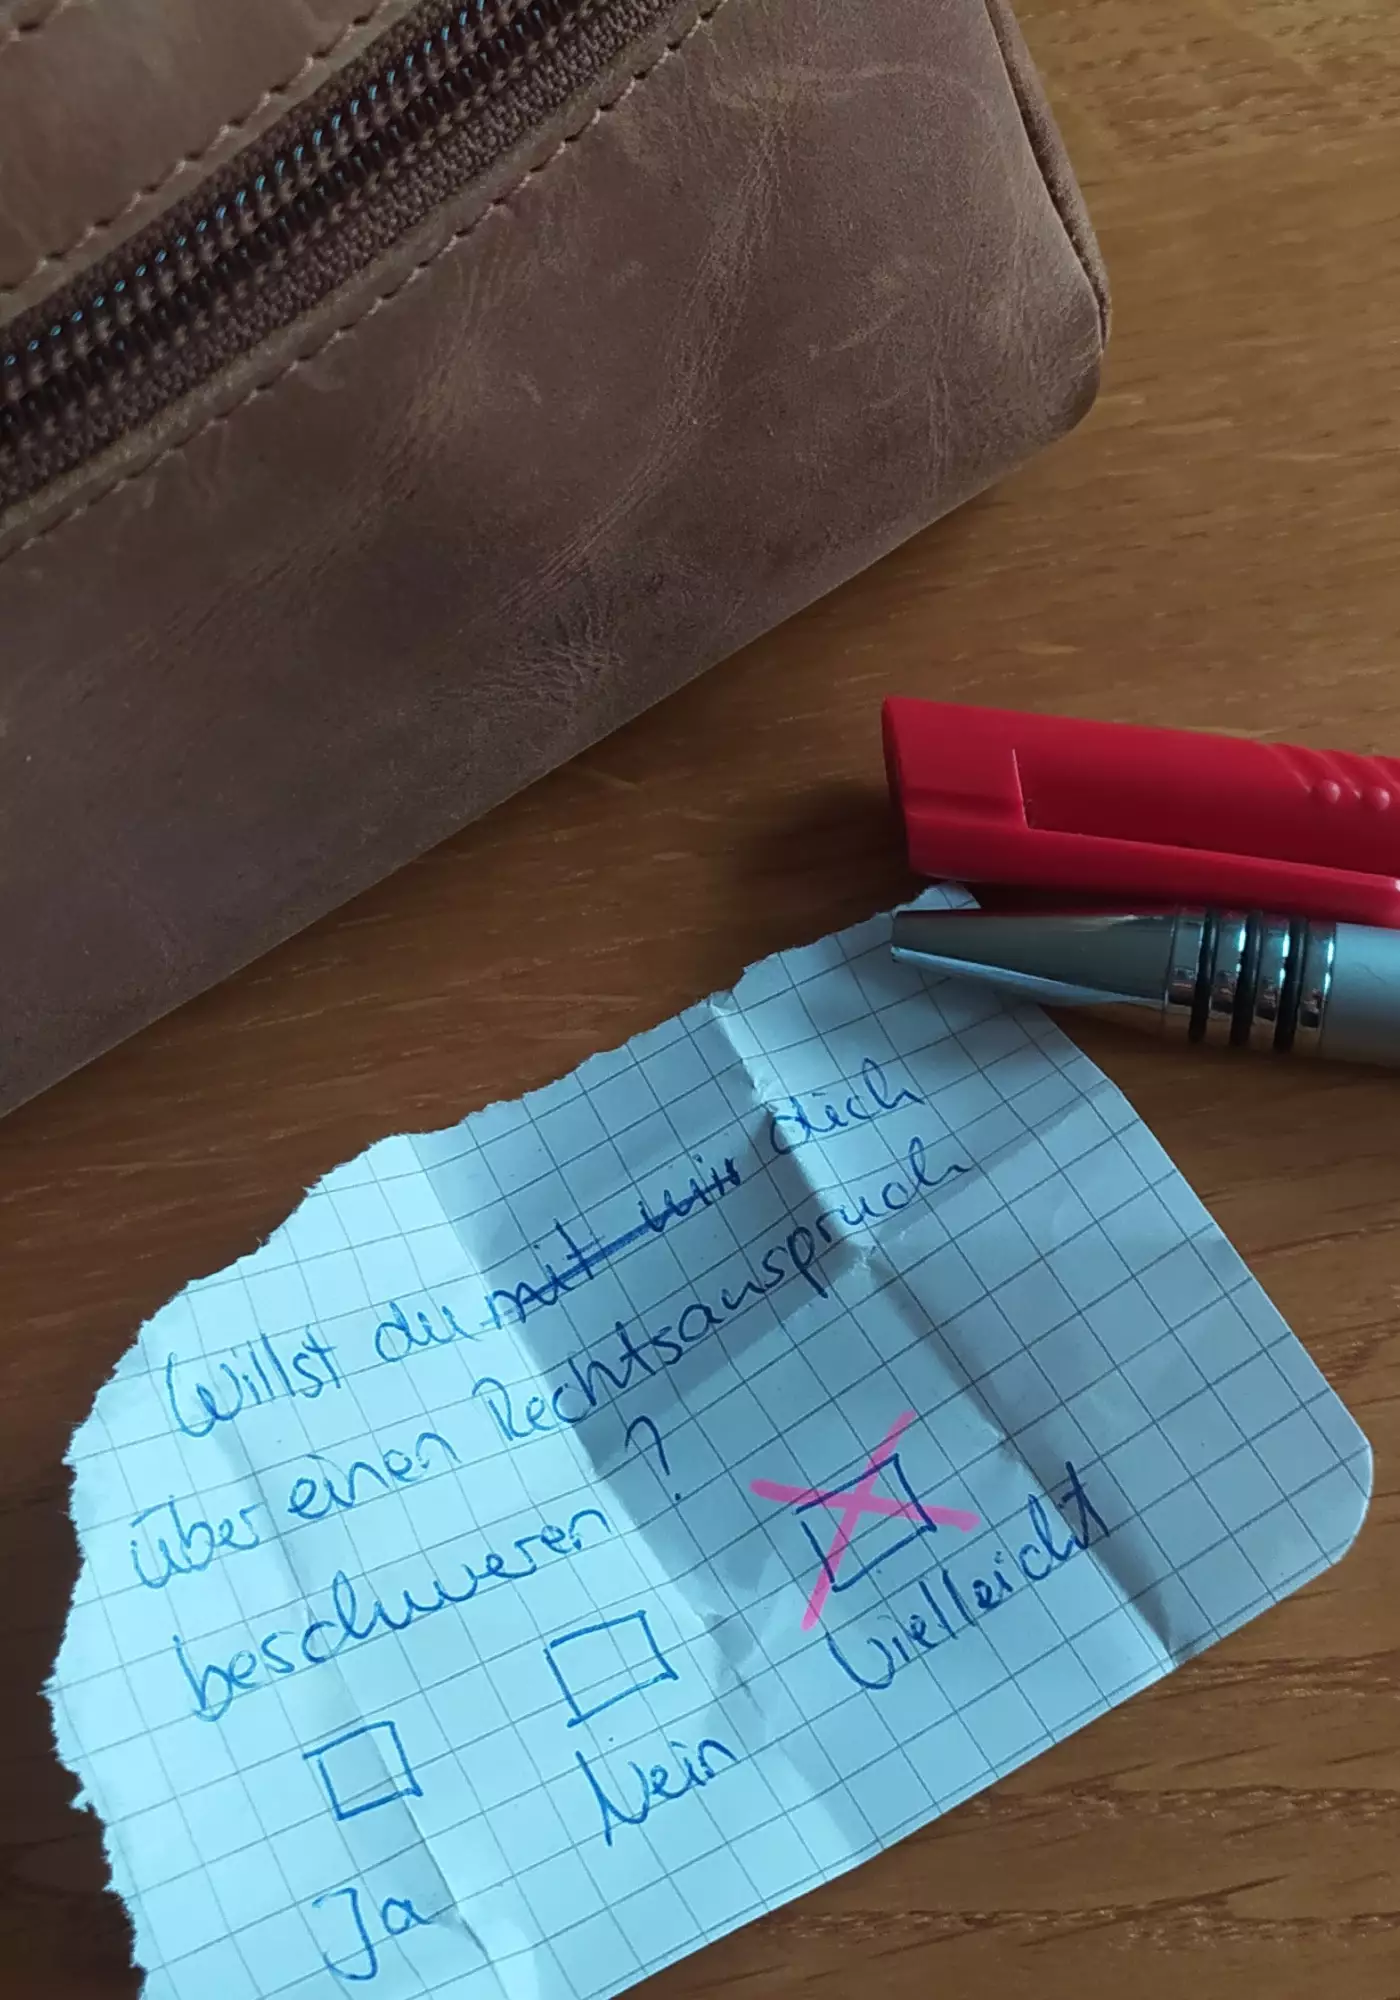 Willst du mit mir dich
über einen Rechtsanspruch
beschweren?
Ja
Nein
Vielleicht